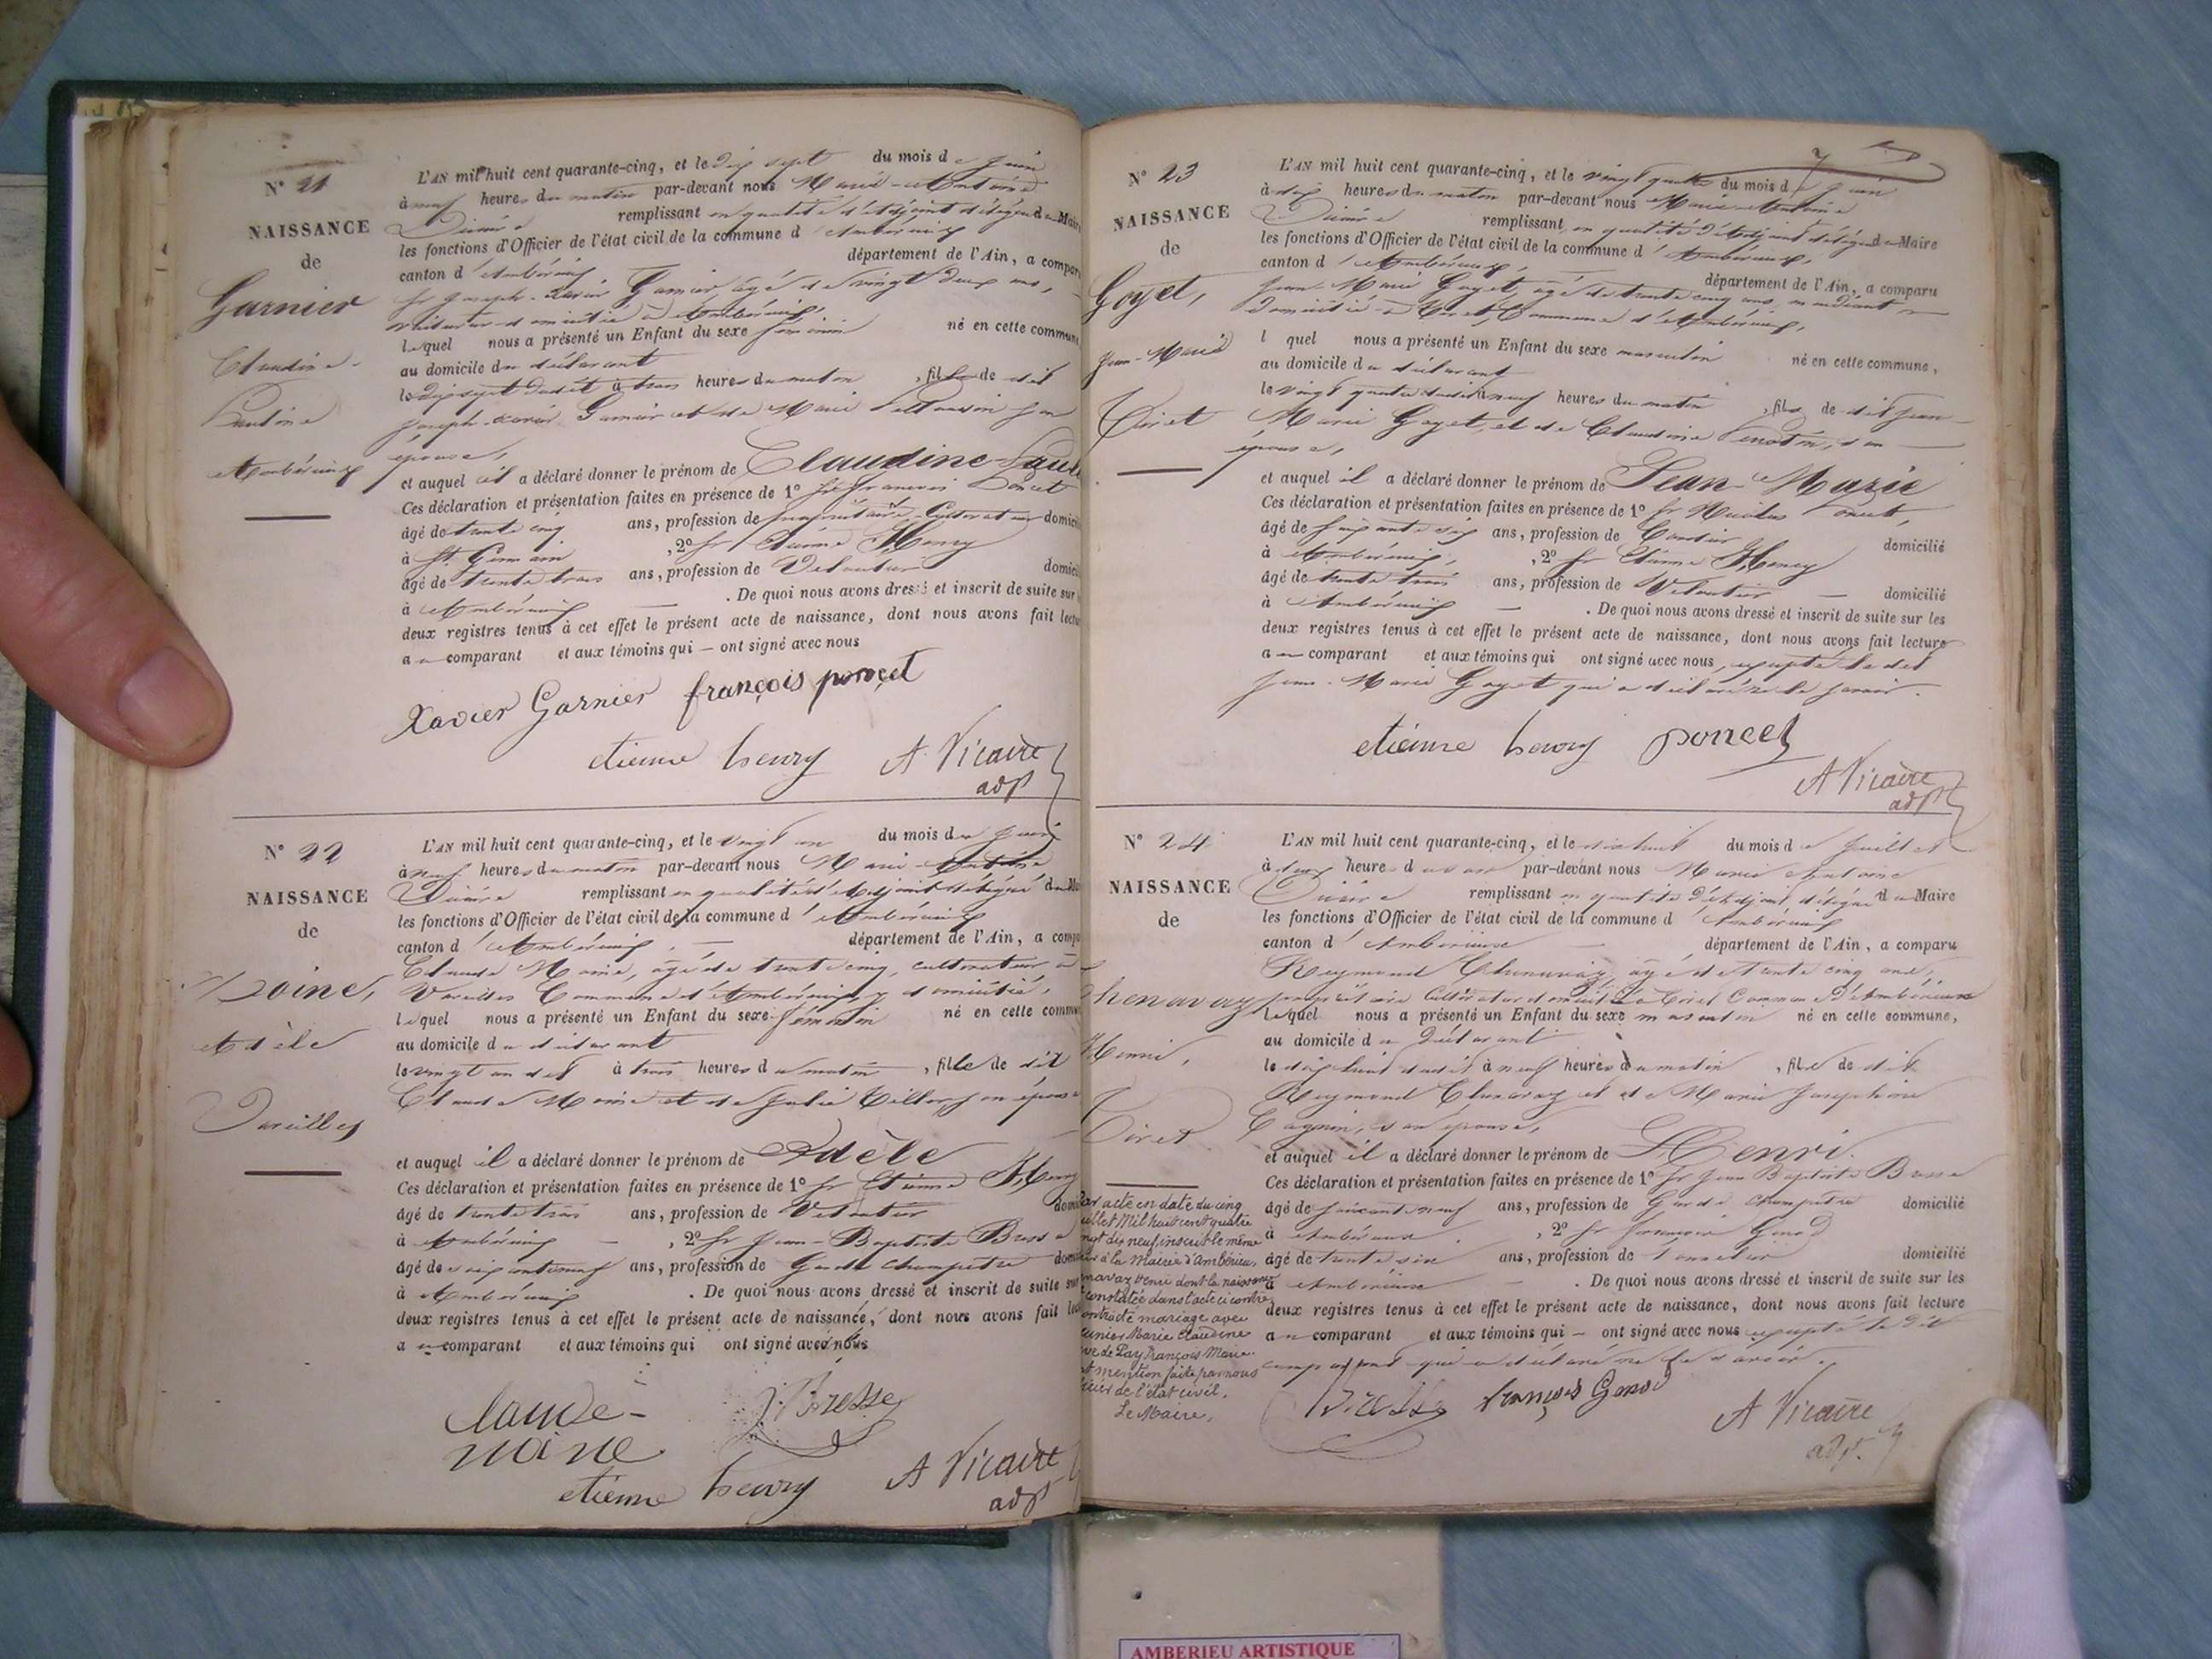 N° 21
NAISSANCE
de
Garnier
Claudine-
Pauline
Ambérieux
L'AN mil huit cent quarante-cinq, et le dix sept du mois de Juin
à neuf heures du matin par-devant nous Marie-Antoine
remplissant en qualité d'Adjoint délégué du Maire
les fonctions d'Officier de l'état civil de la commune d'Ambérieux
canton d'Ambérieux, département de l'Ain, a compar
Sr Joseph-Xavier Garnier, âgé de vingt deux ans,
domicilié à Ambérieux,
lequel nous a présenté un Enfant du sexe féminin né en cette commune
au domicile du déclarant
le dix sept dudit à trois heures du matin, fille de dit
Joseph-Xavier Garnier et de Marie son
épouse,
et auquel il a déclaré donner le prénom de Claudine-Paul
Ces déclaration et présentation faites en présence de 1° Sr françois Poncet
âgé de trente cinq ans, profession de propriétaire-Cultivateur domicil
à St. Germain, 2° Sr Etienne Henry
âgé de trente trois ans, profession de domicil
à Ambérieux — . De quoi nous avons dressé et inscrit de suite sur
deux registres tenus à cet effet le présent acte de naissance, dont nous avons fait lectu
au comparant et aux témoins qui — ont signé avec nous
Xavier Garnier françois poncet
etienne henry A Vicaire
adjt
N° 22
NAISSANCE
de
Moine,
Adèle
Vareilles
L'AN mil huit cent quarante-cinq, et le vingt un du mois de Juin
à neuf heures du matin par-devant nous Marie-Antoine
remplissant en qualité d'Adjoint délégué du Ma
les fonctions d'Officier de l'état civil de la commune d'Ambérieux
canton d'Ambérieux, — département de l'Ain, a comp
Claude Moine, âgé de trente cinq, cultivateur à
Vareilles Commune d'Ambérieux, y domicilié,
lequel nous a présenté un Enfant du sexe féminin né en cette commun
au domicile du déclarant
le vingt un dudit à trois heures du matin, fille de dit
Claude Moine et de Julie son épouse
et auquel il a déclaré donner le prénom de Adèle
Ces déclaration et présentation faites en présence de 1° Sr Etienne Henry
âgé de trente trois ans, profession de domi
à Ambérieux —, 2° Sr Jean-Baptiste Bresse
âgé de soixante neuf ans, profession de Garde Champêtre domi
à Ambérieux . De quoi nous avons dressé et inscrit de suite sur
deux registres tenus à cet effet le présent acte de naissance, dont nous avons fait lec
au comparant et aux témoins qui ont signé avec nous
claude- Bresse
moine
etienne henry A Vicaire
adjt
N° 23
NAISSANCE
de
Goyet,
Jean-Marie
Tiret
L'AN mil huit cent quarante-cinq, et le vingt quatre du mois de Juin
à dix heures du matin par-devant nous Marie-Antoine
remplissant en qualité d'Adjoint délégué du Maire
les fonctions d'Officier de l'état civil de la commune d'Ambérieux,
canton d'Ambérieux, département de l'Ain, a comparu
Jean-Marie Goyet, âgé de trente cinq ans,
domicilié à Tiret, Commune d'Ambérieux,
l quel nous a présenté un Enfant du sexe masculin né en cette commune,
au domicile du déclarant
le vingt quatre dudit à neuf heures du matin, fils de dit Jean-
Marie Goyet, et de Claudine son
épouse,
et auquel il a déclaré donner le prénom de Jean-Marie
Ces déclaration et présentation faites en présence de 1° Sr Nicolas Poncet,
âgé de ans, profession de domicilié
à Ambérieux, 2° Sr Etienne Henry
âgé de trente trois ans, profession de — domicilié
à Ambérieux — . De quoi nous avons dressé et inscrit de suite sur les
deux registres tenus à cet effet le présent acte de naissance, dont nous avons fait lecture
au comparant et aux témoins qui ont signé avec nous, excepté le dit
Jean-Marie Goyet qui a déclaré ne le savoir.
etienne henry poncet
A Vicaire
adjt
N° 24
NAISSANCE
de
henavaz
Henri,
Tiret
L'AN mil huit cent quarante-cinq, et le dix huit du mois de Juillet
à heures du par-devant nous Marie Antoine
remplissant en qualité d'Adjoint délégué du Maire
les fonctions d'Officier de l'état civil de la commune d'Ambérieux
canton d'Ambérieux — département de l'Ain, a comparu
Reymond Chenavaz, âgé de trente cinq ans,
propriétaire Cultivateur domicilié à Tiret Commune d'Ambérieux
lequel nous a présenté un Enfant du sexe masculin né en cette commune,
au domicile du Déclarant
le dix huit dudit à neuf heures du matin, fils de dit
Reymond Chenavaz et de Marie Josephine
son épouse,
et auquel il a déclaré donner le prénom de Henri.
Ces déclaration et présentation faites en présence de 1° Sr Jean Baptiste Bresse
âgé de soixante neuf ans, profession de Garde champêtre domicilié
à Ambérieux, 2° Sr françois Genod
âgé de trente six ans, profession de domicilié
à Ambérieux — . De quoi nous avons dressé et inscrit de suite sur les
deux registres tenus à cet effet le présent acte de naissance, dont nous avons fait lecture
au comparant et aux témoins qui — ont signé avec nous excepté le dit
comparant qui a déclaré ne le savoir.
Bresse françois Genod
A Vicaire
adjt.
Par acte en date du cinq
uillet Mil huit cent quatre
ingt dix neuf, inscrit le même
our à la Mairie d'Ambérieu,
enavaz Henri dont la naissance
constatée dans l'acte ci contre,
contracté mariage avec
Marie Claudine
uve de Pay François Marie.
nt mention faite par nous
icier de l'état civil.
Le Maire,
AMBERIEU ARTISTIQUE